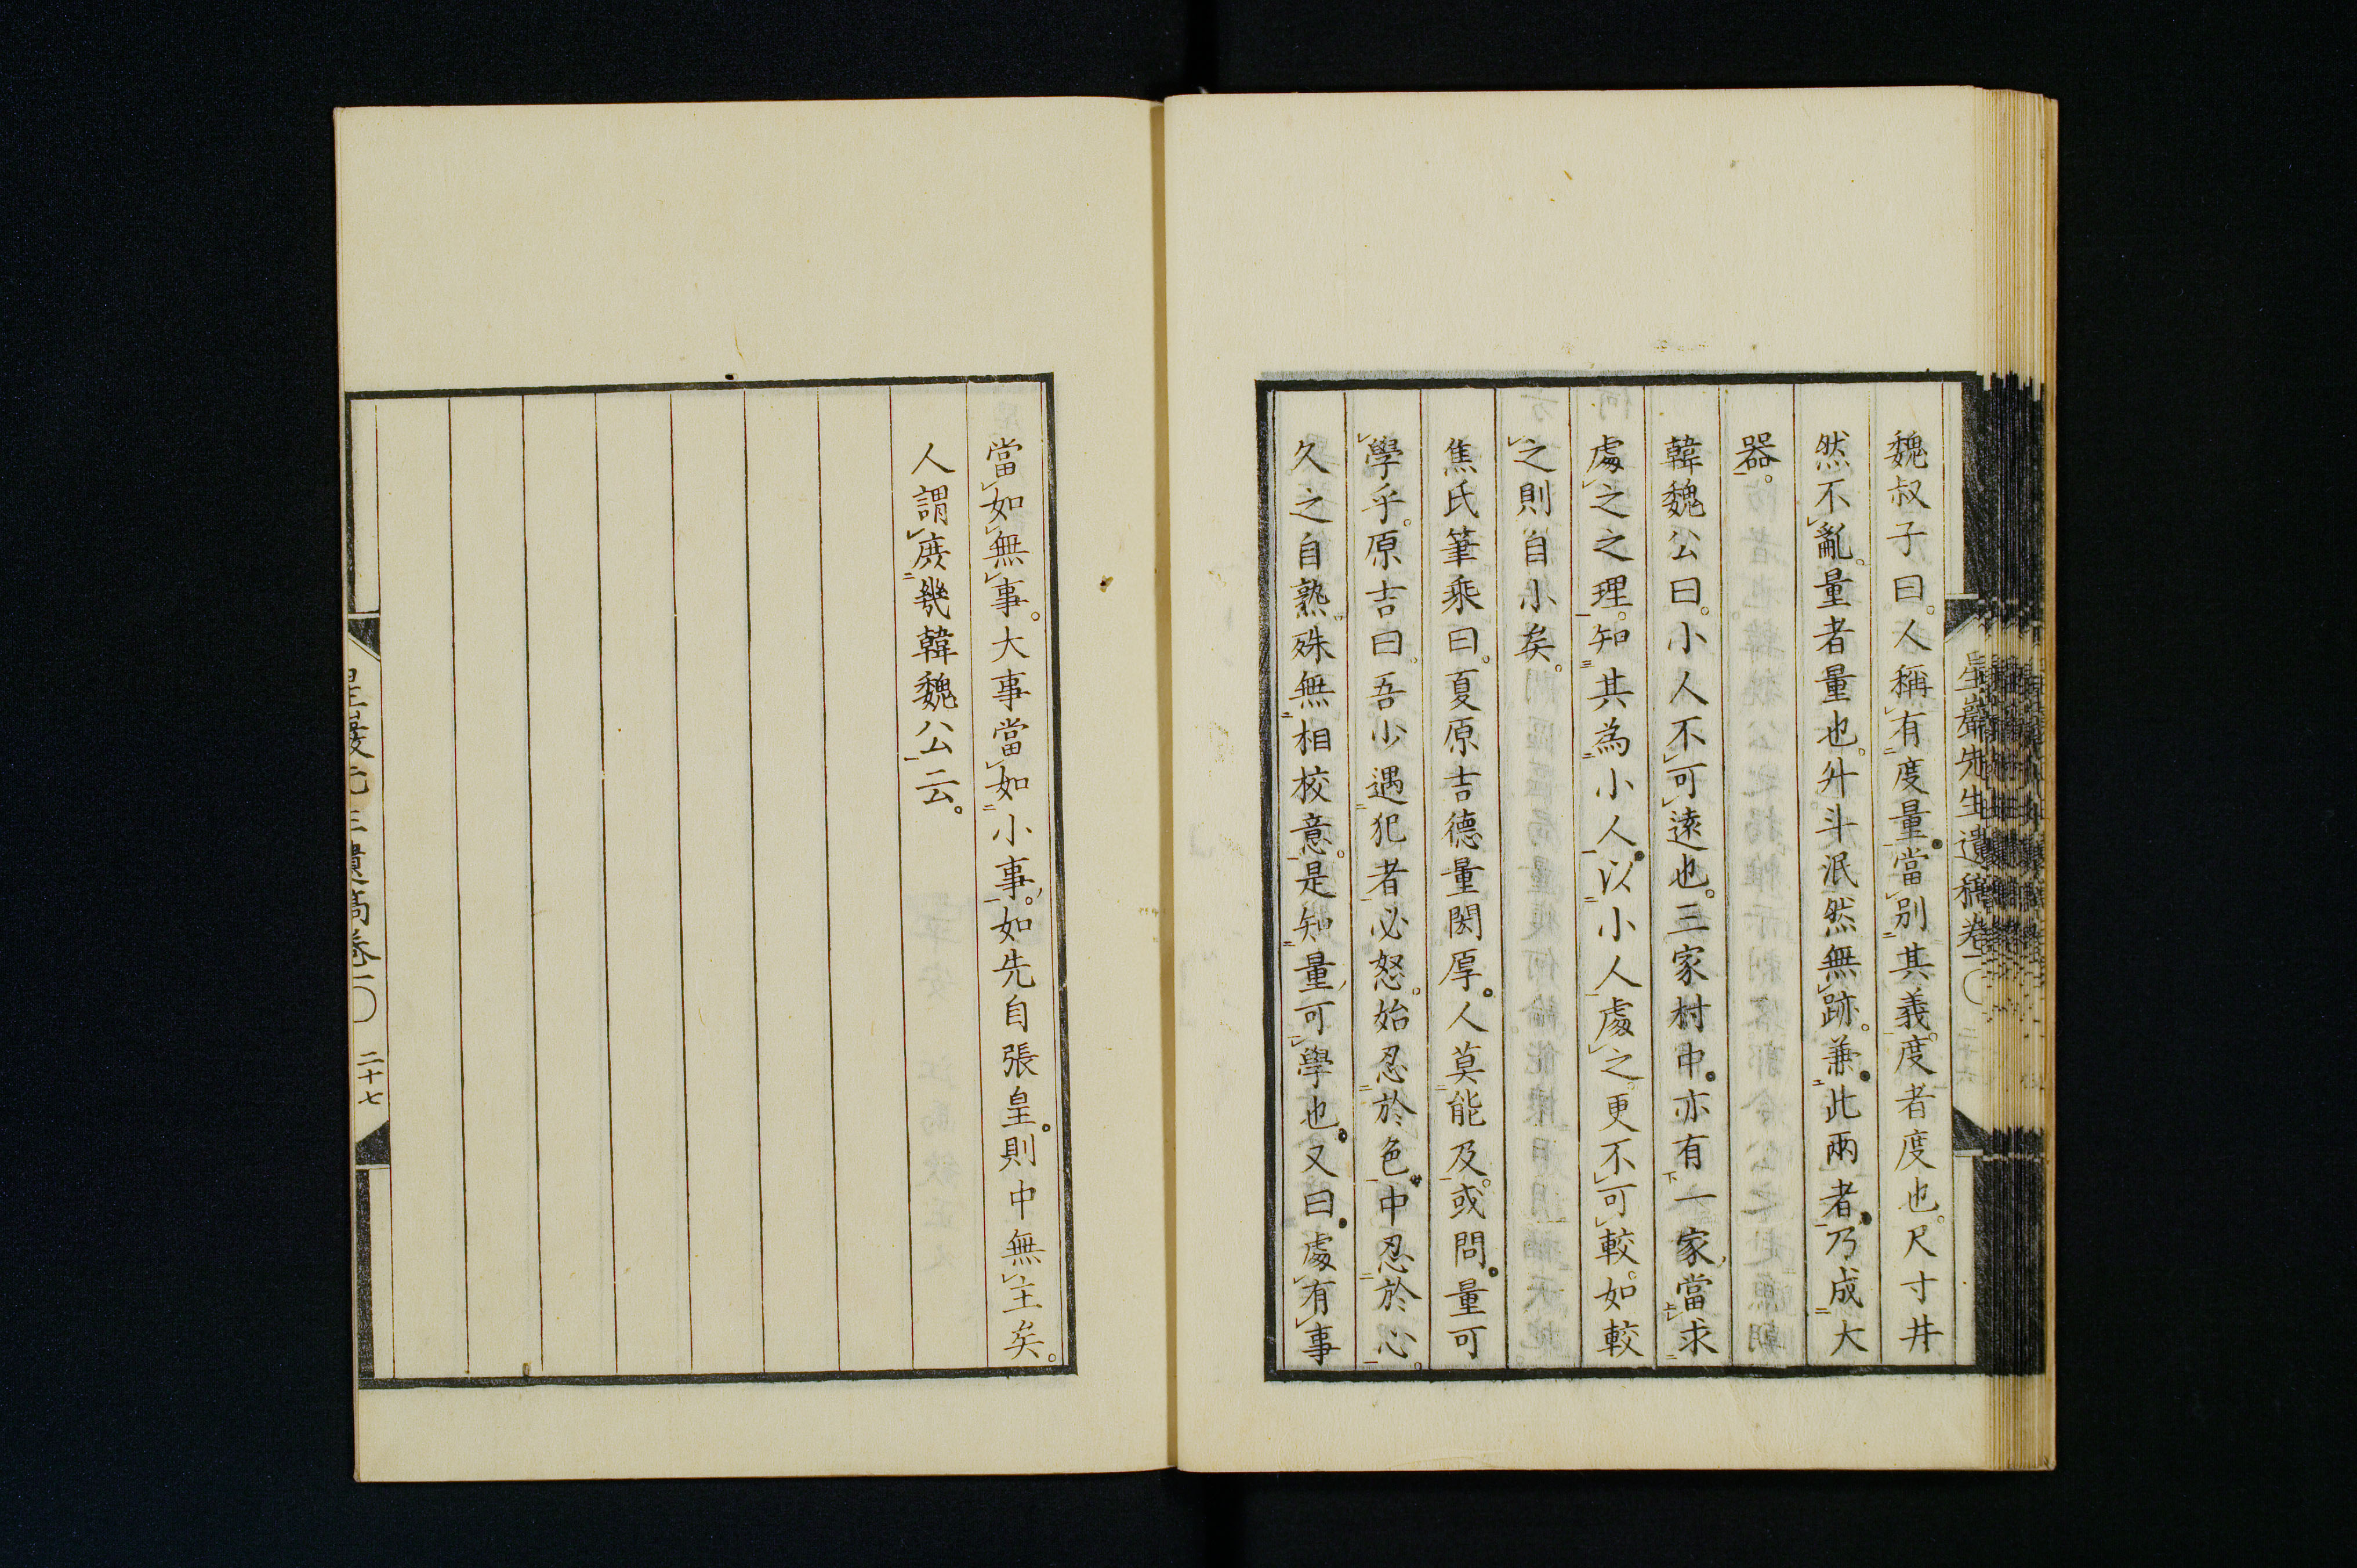 魏叔子曰。人稱有度量。當別其義。度者度也。尺寸井
然不亂。量者量也。升斗泯然無跡。兼此兩者。乃成大
器。
韓魏公曰。小人不可遠也。三家村中。亦有一家。當求
處之之理。知其為小人。以小人處之。更不可較。如較
之則自小矣。
焦氏筆乘曰。夏原吉德量閎厚。人莫能及。或問。量可
學乎。原吉曰。吾少遇犯者必怒。始忍於色。中忍於心。
久之自熟。殊無相校意。是知量可學也。又曰。處有事
當如無事。大事當如小事。如先自張皇。則中無主矣。
人謂庶幾韓魏公云。
星巖先生遺稿卷一
二十七